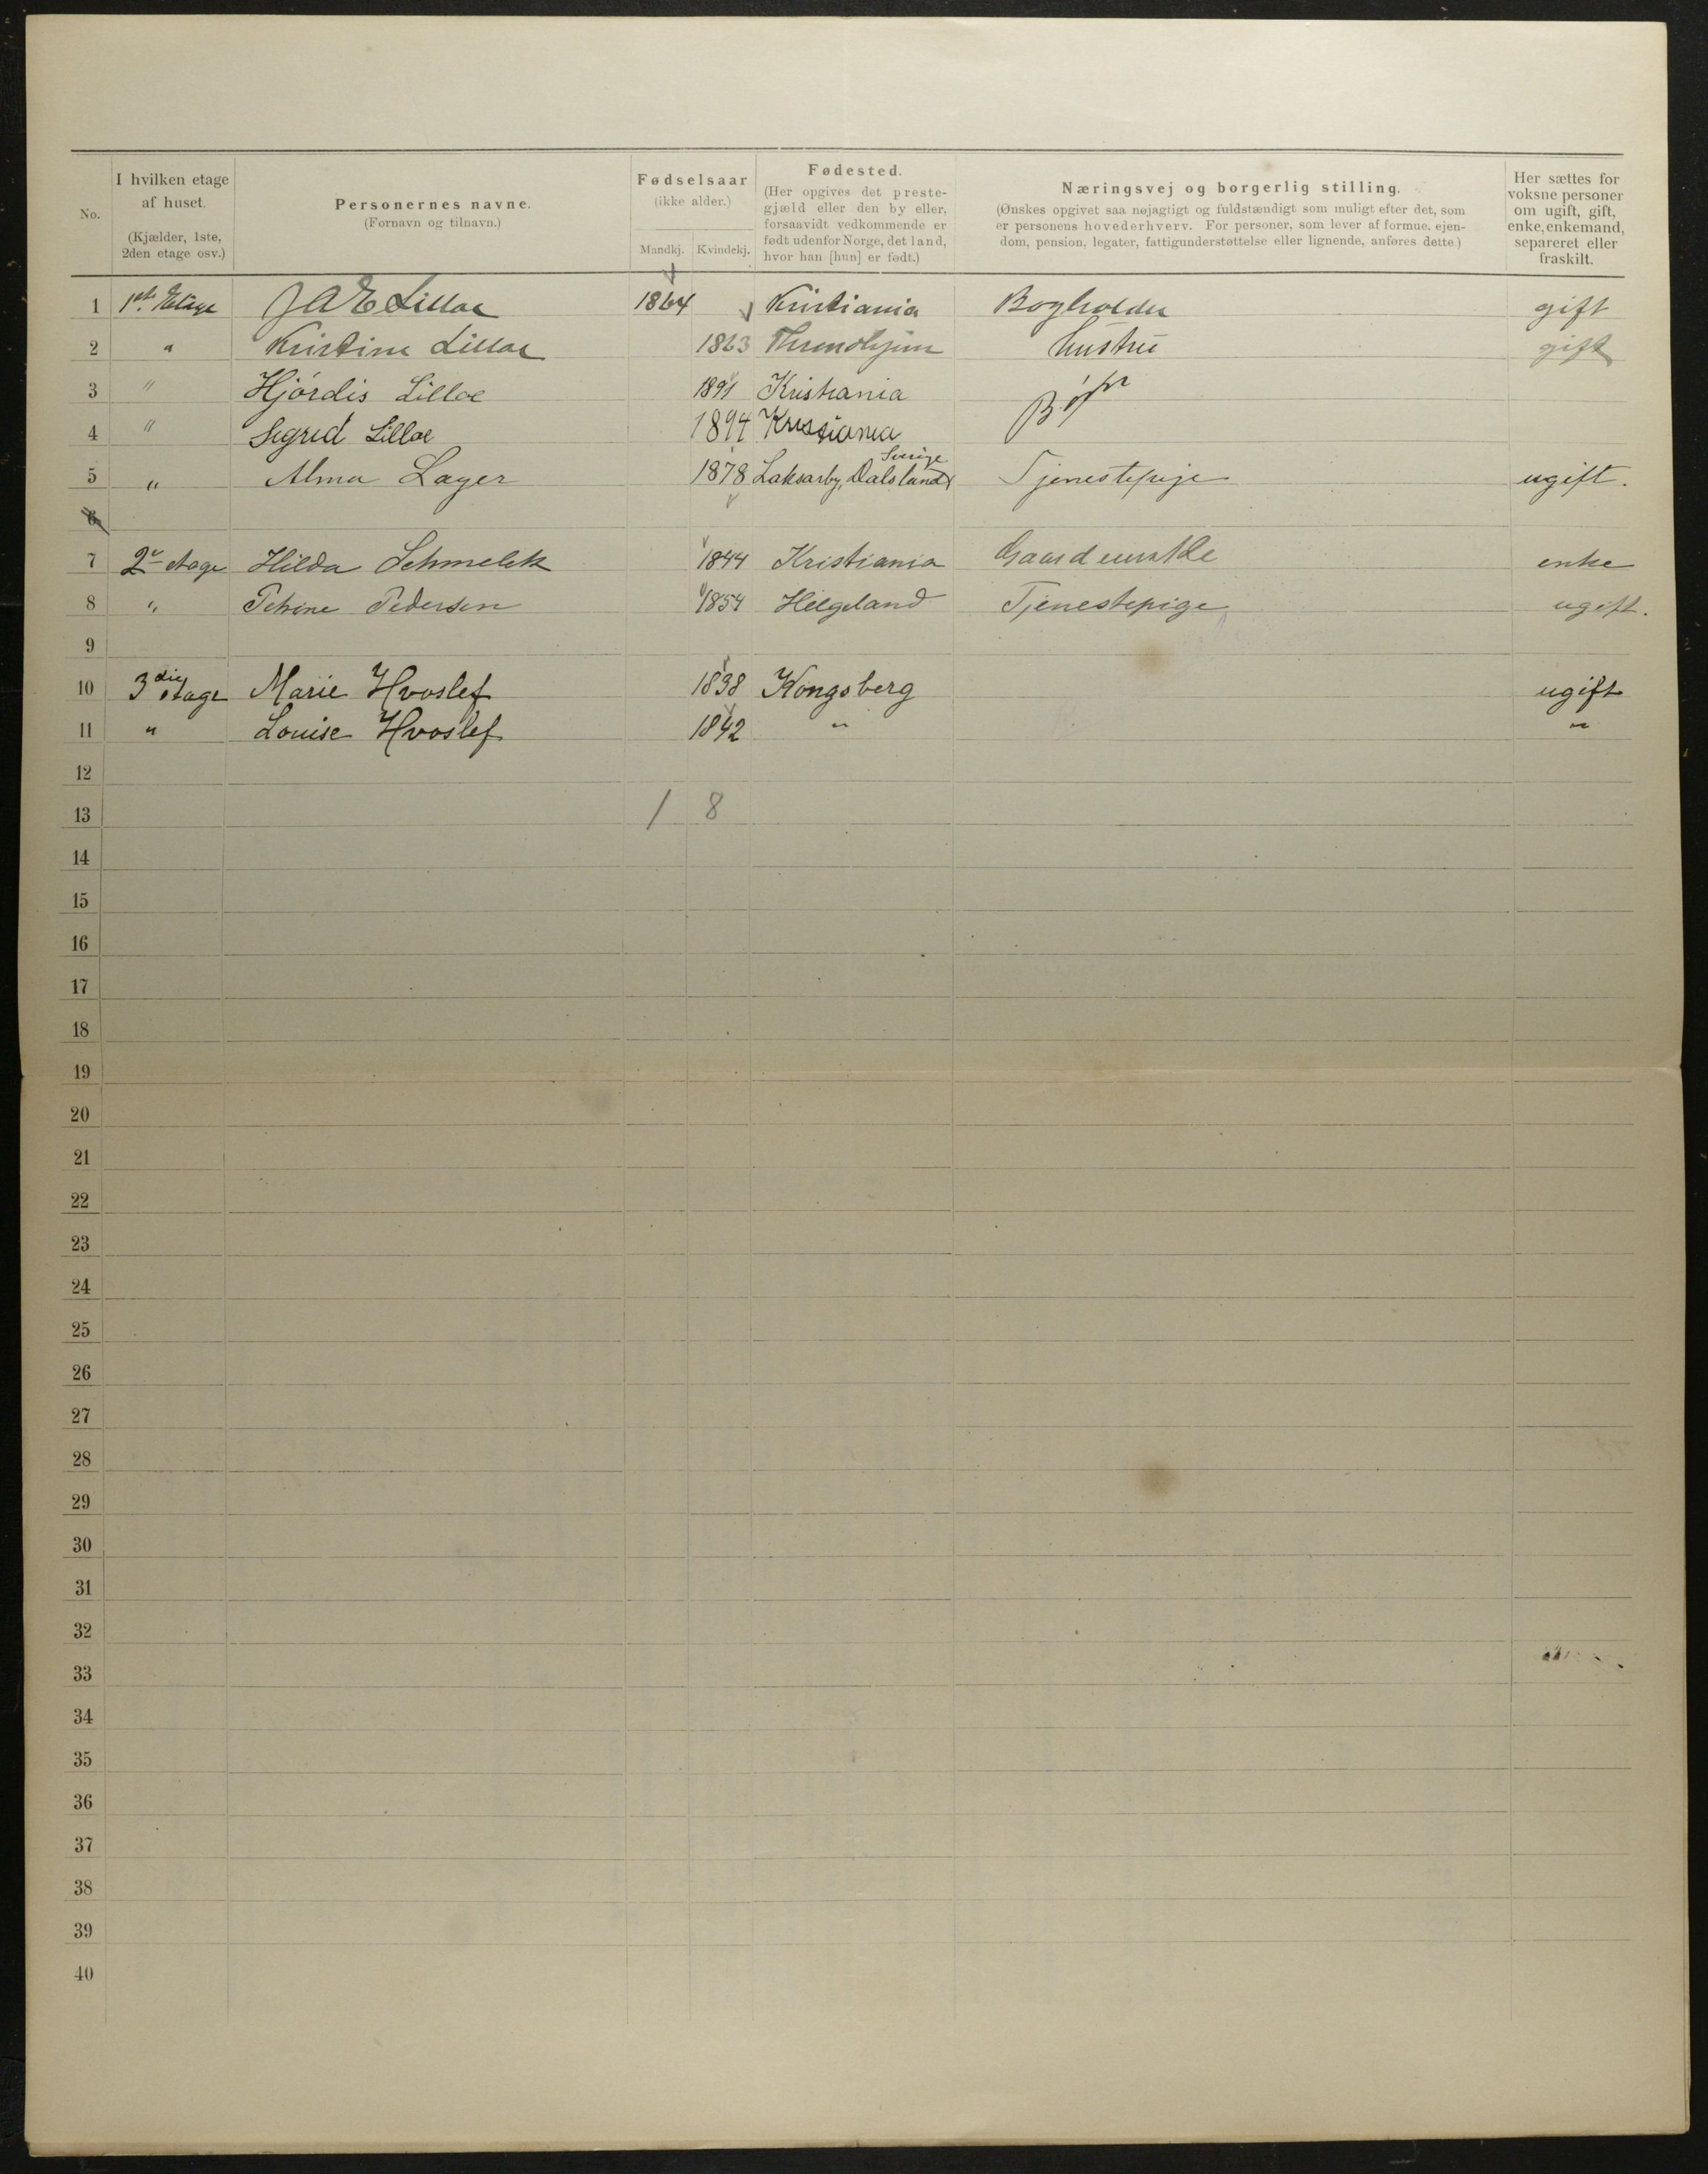 No.
I hvilken etage af huset.
(Kjælder, 1ste, 2den etage osv.)
Personernes navne.
(Fornavn og tilnavn.)
Fødselsaar
(ikke alder.)
Mandkj. Kvindekj.
Fødested.
(Her opgives det preste-
gjæld eller den by eller,
forsaavidt vedkommende er
født udenfor Norge, det land,
hvor han [hun] er født.)
Næringsvej og borgerlig stilling.
(Ønskes opgivet saa nøjagtigt og fuldstændigt som muligt efter det, som
er personens hovederhverv. For personer, som lever af formue, ejen-
dom, pension, legater, fattigunderstøttelse eller lignende, anføres dette.)
Her sættes for
voksne personer
om ugift, gift,
enke, enkemand,
separeret eller
fraskilt.
1 1ste Etage J A E Lilloe 1864 Kristiania Bogholder gift
2 " Kristine Lilloe 1863 Throndhjem hustru gift
3 " Hjórdis Lilloe 1891 Kristiania
4 " Sigrid Lilloe 1894 Kristiania
5 " Alma Lager 1878 Laksarby, Dalsland Sverige Tjenestepige ugift.
6
7 2 etage Hilda Schmelck 1844 Kristiania enke
8 " Petrine Pedersen 1854 Helgeland Tjenestepige ugift.
9
10 3die etage Marie Hvoslef 1838 Kongsberg ugift
11 " Louise Hvoslef 1842 " "
12
13 1 8
14
15
16
17
18
19
20
21
22
23
24
25
26
27
28
29
30
31
32
33
34
35
36
37
38
39
40